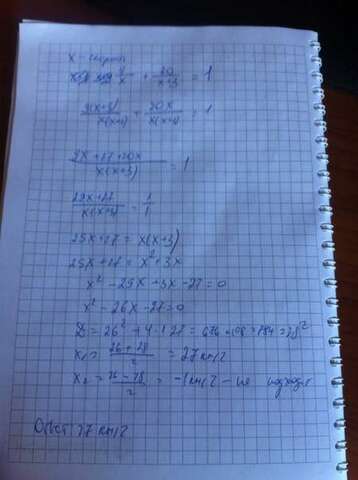 x - скорость
9/x + 20/(x+3) = 1
9(x+3)/x(x+3) + 20x/x(x+3) = 1
9x+27+20x/x(x+3) = 1
29x+27/x(x+3) = 1/1
29x+27 = x(x+3)
29x+27 = x²+3x
x² - 29x + 3x - 27 = 0
x² - 26x - 27 = 0
D = 26² + 4·1·27 = 676 + 108 = 784 = 28²
x₁ = 26+28/2 = 27 км/ч
x₂ = 26-28/2 = -1 км/ч - не подходит
Ответ 27 км/ч